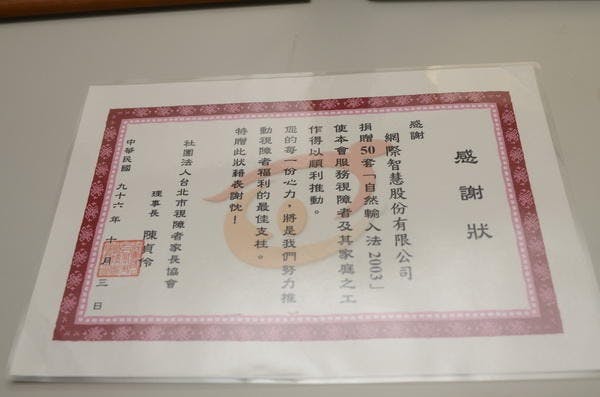 感謝狀
感謝
網際智慧股份有限公司
捐贈50套「自然輸入法2003」
使本會服務視障者及其家庭之工
作得以順利推動。
您的每一份心力，將是我們努力推
動視障者福利的最佳支柱。
特贈此狀藉表謝忱！
社團法人台北市視障者家長協會
理事長 陳貞伶
中華民國 九十六年 十 月 三 日